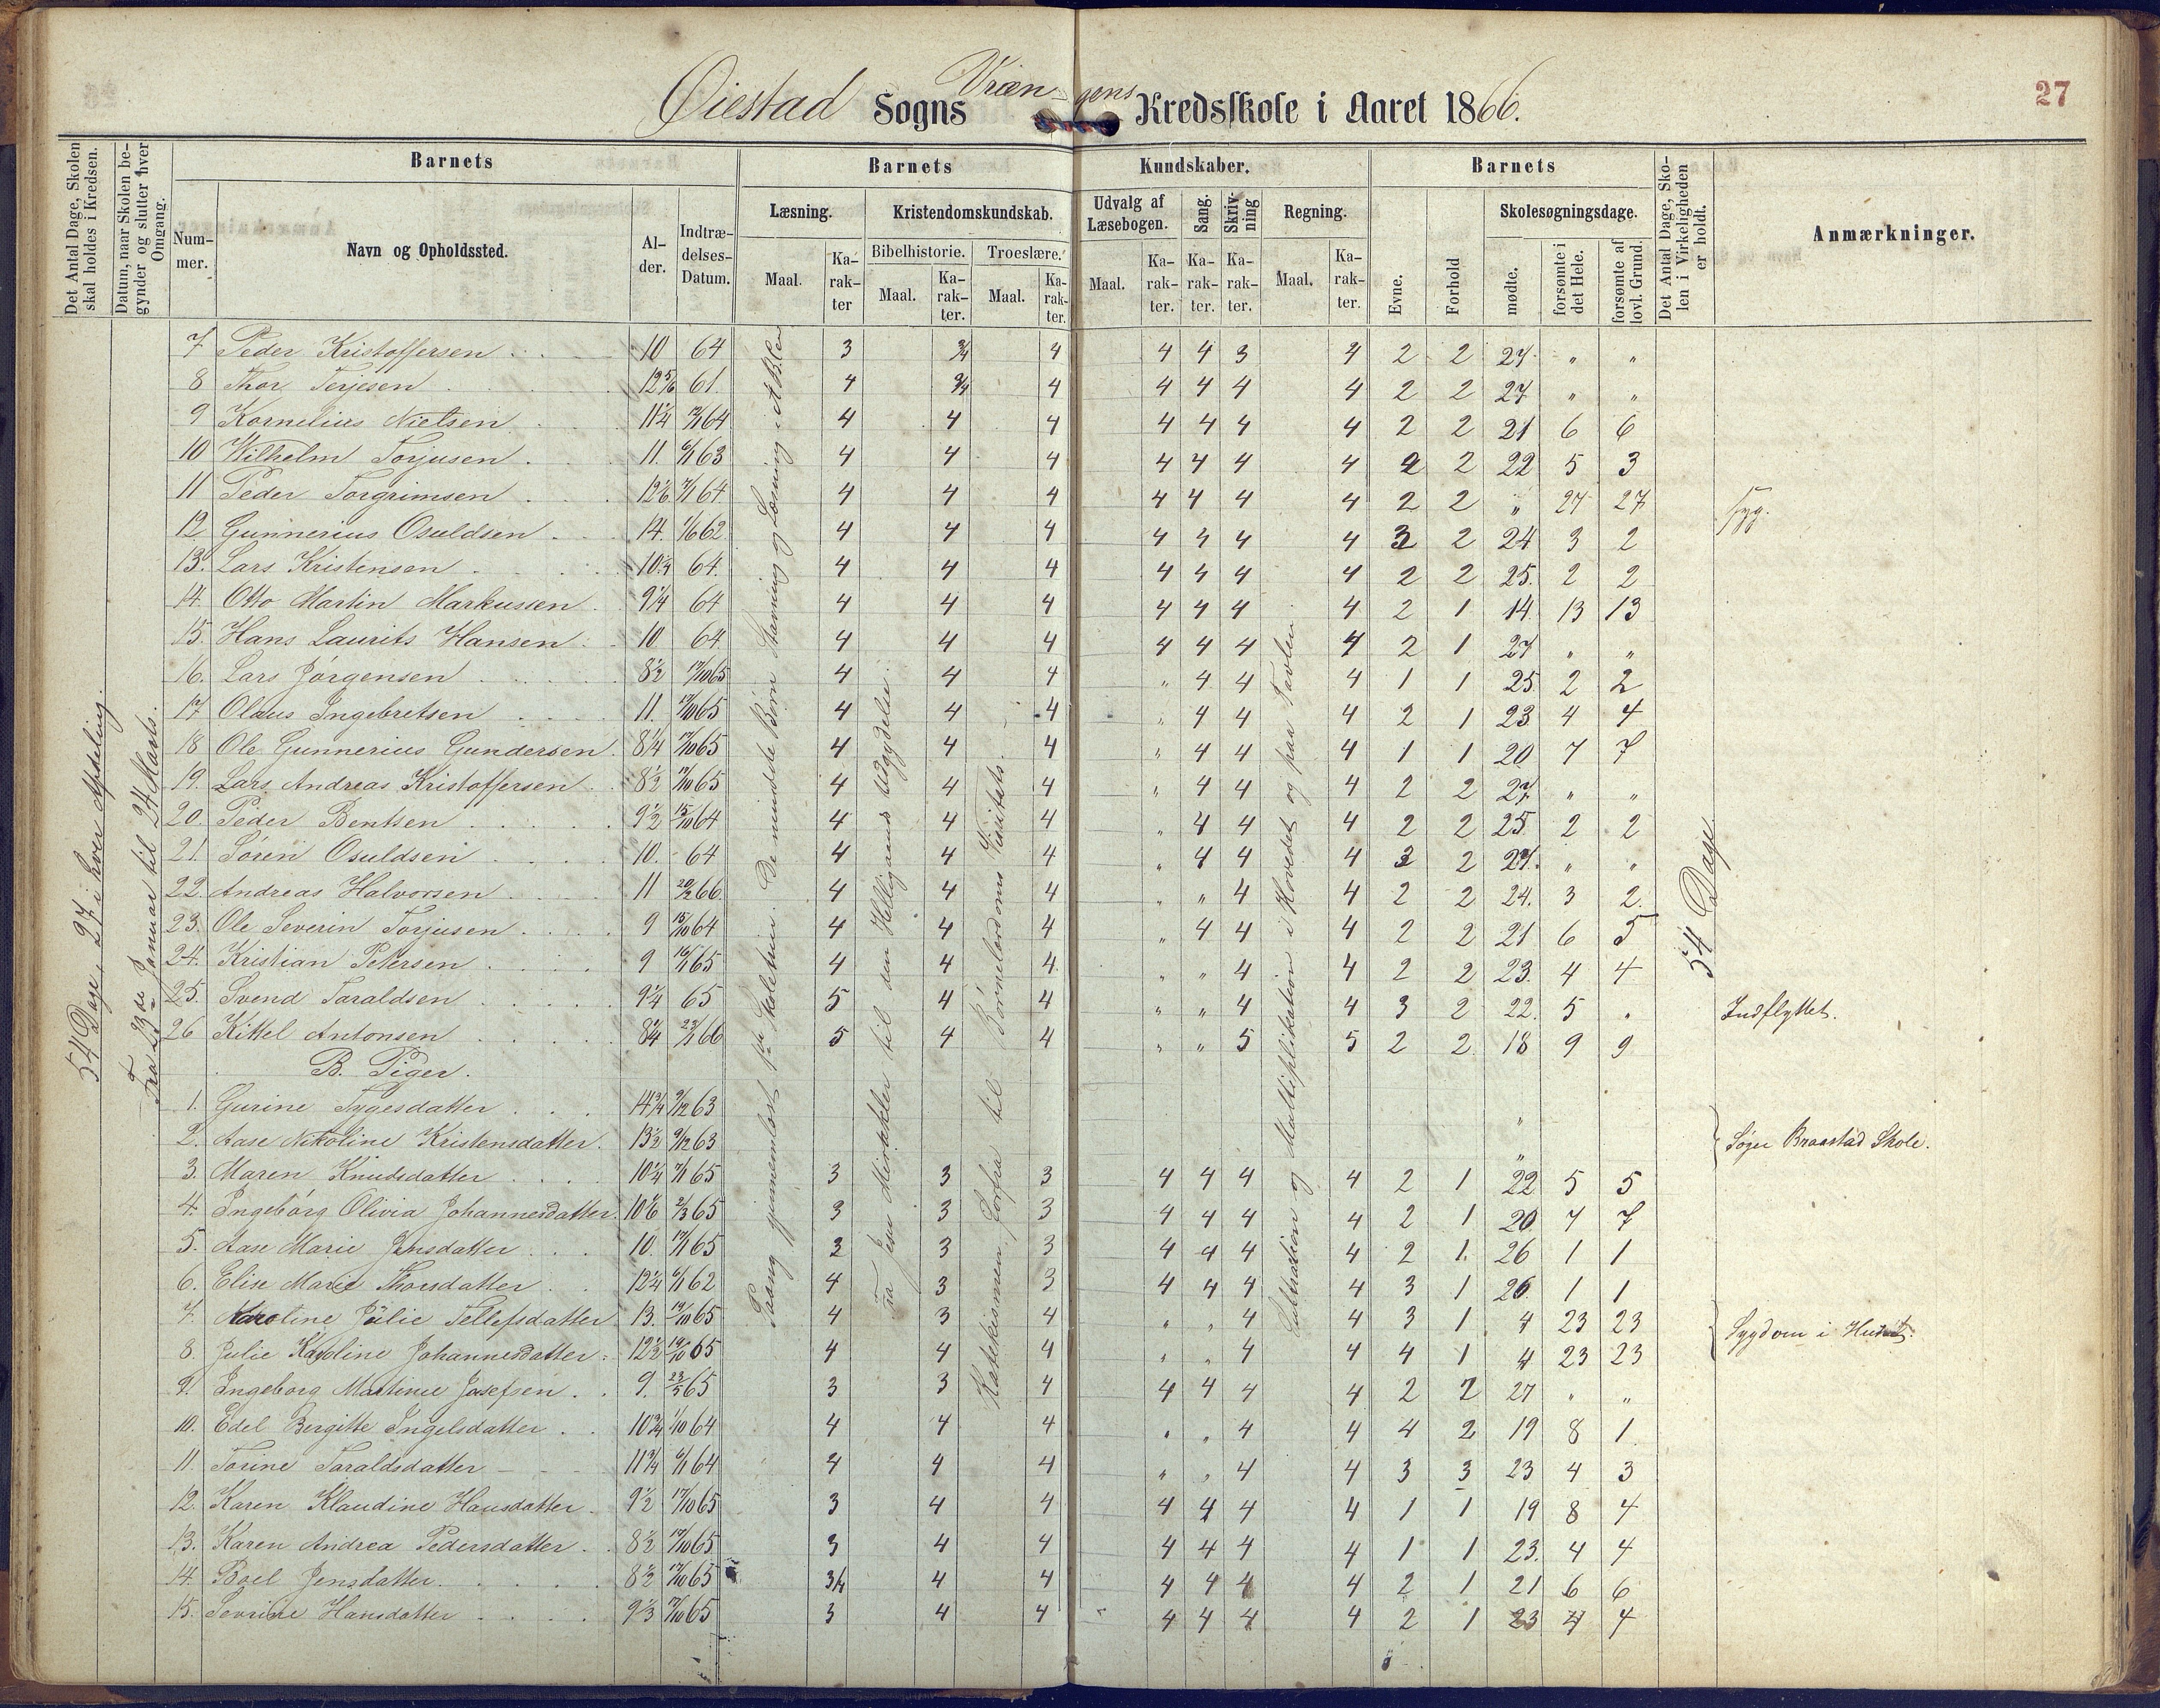 Øiestad Sogns Vræn-gens Kredsskole i Aaret 1866.
27
Det Antal Dage, Skolen skal holdes i Kredsen.
Datum, naar Skolen begynder og slutter hver Omgang.
Barnets
Barnets
Kundskaber.
Barnets
Det Antal Dage, Skolen i Virkeligheden er holdt.
Anmærkninger.
Nummer.
Navn og Opholdssted.
Alder.
Indtrædelses-Datum.
Læsning.
Kristendomskundskab.
Udvalg af Læsebogen.
Sang.
Skrivning
Regning.
Skolesøgningsdage.
Bibelhistorie.
Troeslære.
Maal.
Karakter
Maal.
Karakter.
Maal.
Karakter.
Maal.
Karakter.
Karakter.
Karakter.
Maal.
Karakter.
Evne.
Forhold
mødte.
forsømte i det Hele.
forsømte af lovl. Grund.
54 Dage, 27 i hver Afdeling.
Fra 23de Januar til 24 Marts.
Paany gjennemlært 1ste Skoletrin. De mindste Børn Stavning og Læsning i A.B.C.en
Fra Jesu Mirakler til den Helligaands Udgydelse.
Katekismen, forfra til Børnelærdoms Visitats.
Subtraktion og Multiplikation i Hovedet og paa Tavlen.
54 Dage.
7 Peder Kristoffersen 10 64 3 3/4 4 4 4 3 4 2 2 27 " "
8 Thor Terjesen 12 5/6 61. 4 3/4 4 4 4 4 4 2 2 27 " "
9 Kornelius Nielsen 11 1/4 64 4 4 4 4 4 4 4 2 2 21 6 6
10 Wilhelm Torjusen 11. 6/1 63 4 4 4 4 4 4 4 2 2 22 5 3
11 Peder Torgrimsen 12 1/6 7/1 64 4 4 4 4 4 4 4 2 2 " 27 27 Syg.
12 Gunnerius Osuldsen 14. 1/6 62 4 4 4 4 4 4 4 3 2 24 3 2
13. Lars Kristensen 10 1/4 64. 4 4 4 4 4 4 4 2 2 25. 2 2
14. Otto Martin Markussen 9 1/4 64 4 4 4 4 4 4 4 2 1 14 13 13
15. Hans Laurits Hansen 10 64. 4 4 4 4 4 4 4 2 1 27 " "
16. Lars Jørgensen 8 1/2 17/10 65 4 4 4 " 4 4 4 1 1 25 2 2
17 Olaus Ingebretsen 11. 17/10 65 4 4 4 " 4 4 4 2 1 23 4 4
18 Ole Gunnerius Gundersen 8 1/4 17/10 65 4 4 4 " 4 4 4 1 1 20 7 7
19. Lars Andreas Kristoffersen 8 1/2 17/10 65 4 4 4 " 4 4 4 2 2 27 " "
20. Peder Bentsen 9 1/2 15/10 64 4 4 4 " 4 4 4 2 2 25 2 2
21. Søren Osuldsen 10. 64 4 4 4 " 4 4 4 3 2 27. " "
22. Andreas Halvorsen 11 20/2 66. 4 4 4 " " 4 4 2 2 24. 3 2.
23. Ole Severin Torjusen 9 15/10 64 4 4 4 " 4 4 4 2 2 21 6 5
24. Kristian Petersen 9 16/1 65 4 4 4 " " 4 4 2 2 23. 4 4
25. Svend Taraldsen 9 1/4 65 5 4 4 " " 4 4 3 2 22. 5 " Indflyttet.
26 Kittel Antonsen 8 1/4 23/1 66 5 4 4 " " 5 5 2 2 18 9 9
B. Piger.
1. Gurine Tygesdatter 14 3/4 9/12 63 "
2. Aase Nikoline Kristensdatter. 13 1/2 9/12 63 " Søger Braastad Skole.
3. Maren Knudsdatter 10 1/4 7/1 65 3 3 3 4 4 4 4 2 1 22 5 5
4. Ingeborg Olivia Johannesdatter. 10 1/6 2/3 65 3 3 3 4 4 4 4 2 1 20. 7 7
5. Aase Marie Jensdatter 10. 17/1 65 3 3 3 4 4 4 4 2 1. 26 1 1
6. Elise Marie Thorsdatter 12 1/4 6/1 62 4 3 3 4 4 4 4 3 1 26 1 1
7. Karoline Julie Tellefsdatter 13. 19/10 65 4 3 4 " " 4 4 3 1 4 23 23 Sygdom i Huset.
8. Julie Karoline Johannesdatter. 12 1/2 19/10 65 4 4 4 " " 4 4 4 1 4 23 23
9. Ingeborg Martinie Josefsen. 9. 23/5 65 3 3 4 4 4 4 4 2 2 27 " "
10. Edel Bergitte Ingelsdatter 10 3/4 1/10 64 4 4 4 " " 4 4 4 2 19 8 1
11. Torine Taraldsdatter 11 3/4 6/1 64 4 4 4 " " 4 4 3 3 23 4 3
12. Karen Klaudine Hansdatter 9 1/2 17/10 65 3 4 4 4 4 4 4 1 1 19 8 4
13. Karen Andrea Pedersdatter 8 1/2 17/10 65 3 4 4 4 4 4 4 1 1 23. 4 4
14. Boel Jensdatter. 8 1/2 17/10 65 3/4 4 4 4 4 4 4 2 1 21 6 6
15. Sevrine Hansdatter 9 1/3 17/10 65 3 4 4 4 4 4 4 2 1 23 4 4